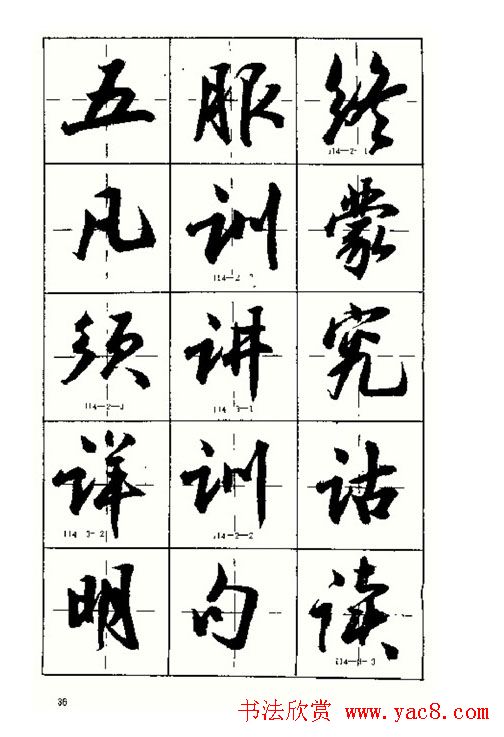 五服终
114—2—1
凡训蒙
须讲究
114—2—3
114 3—1
详训诂
114 3—2
114—2—2
明句读
114—3—3
36
书法欣赏 www.yac8.com